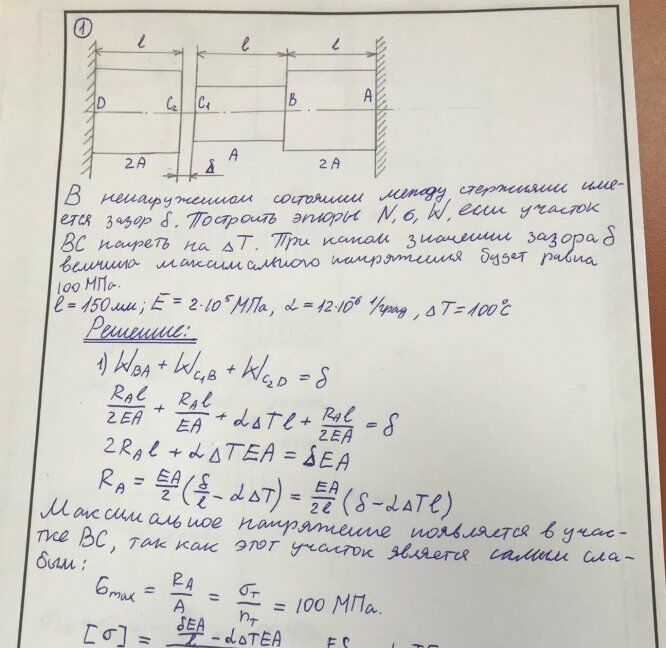 1
l l l
D C₂ C₁ B A
2A A 2A
δ
В ненагруженном состоянии между стержнями име-
ется зазор δ. Построить эпюры N, σ, W, если участок
BC нагреть на ΔT. При каком значении зазора δ
величина максимального напряжения будет равна
100 МПа.
l = 150 мм; E = 2·10⁵ МПа, α = 12·10⁻⁶ 1/град, ΔT = 100°C
Решение:
1) W_BA + W_C₁B + W_C₂D = δ
R_A l/2EA + R_A l/EA + αΔTl + R_A l/2EA = δ
2R_A l + αΔTEA = δEA
R_A = EA/2 (δ/l - αΔT) = EA/2l (δ - αΔTl)
Максимальное напряжение появляется в учас-
тке BC, так как этот участок является самым сла-
бым:
σmax = R_A/A = σ_T/n_T = 100 МПа.
[σ] = δEA/l - αΔTEA